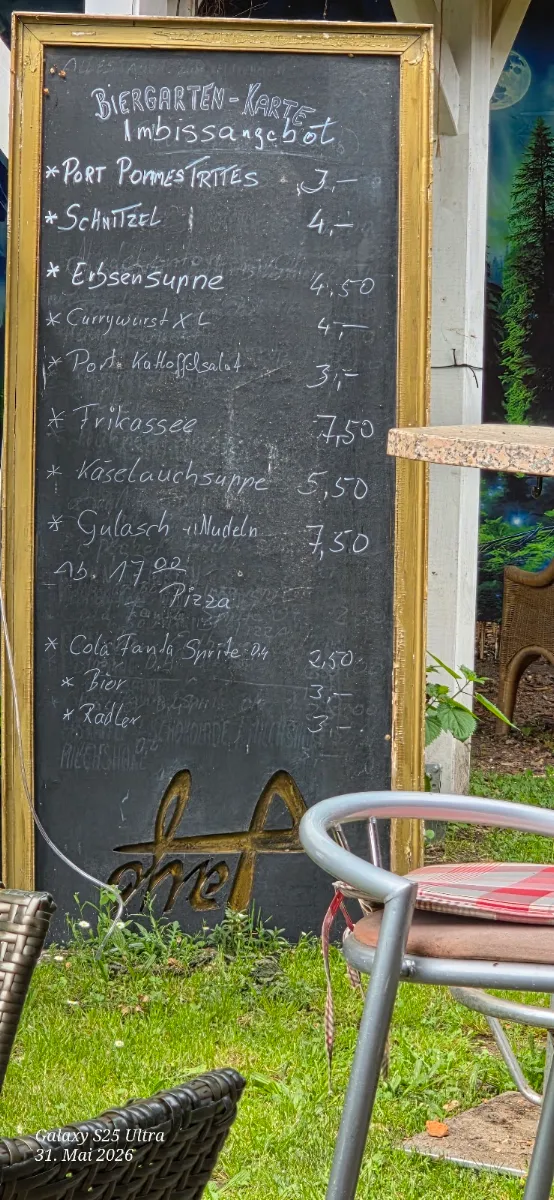 BIERGARTEN-KARTE
Imbissangebot
*PORT POMMES FRITES 3,-
*SCHNITZEL 4,-
* Erbsensuppe 4,50
* Currywurst XL 4,-
* Port. Kartoffelsalat 3,-
* Frikassee 7,50
* Käselauchsuppe 5,50
* Gulasch + Nudeln 7,50
Ab. 17 00
Pizza
* Cola Fanta Sprite 0,4 2,50
* Bier 3,-
* Radler 3,-
Galaxy S25 Ultra
31. Mai 2026